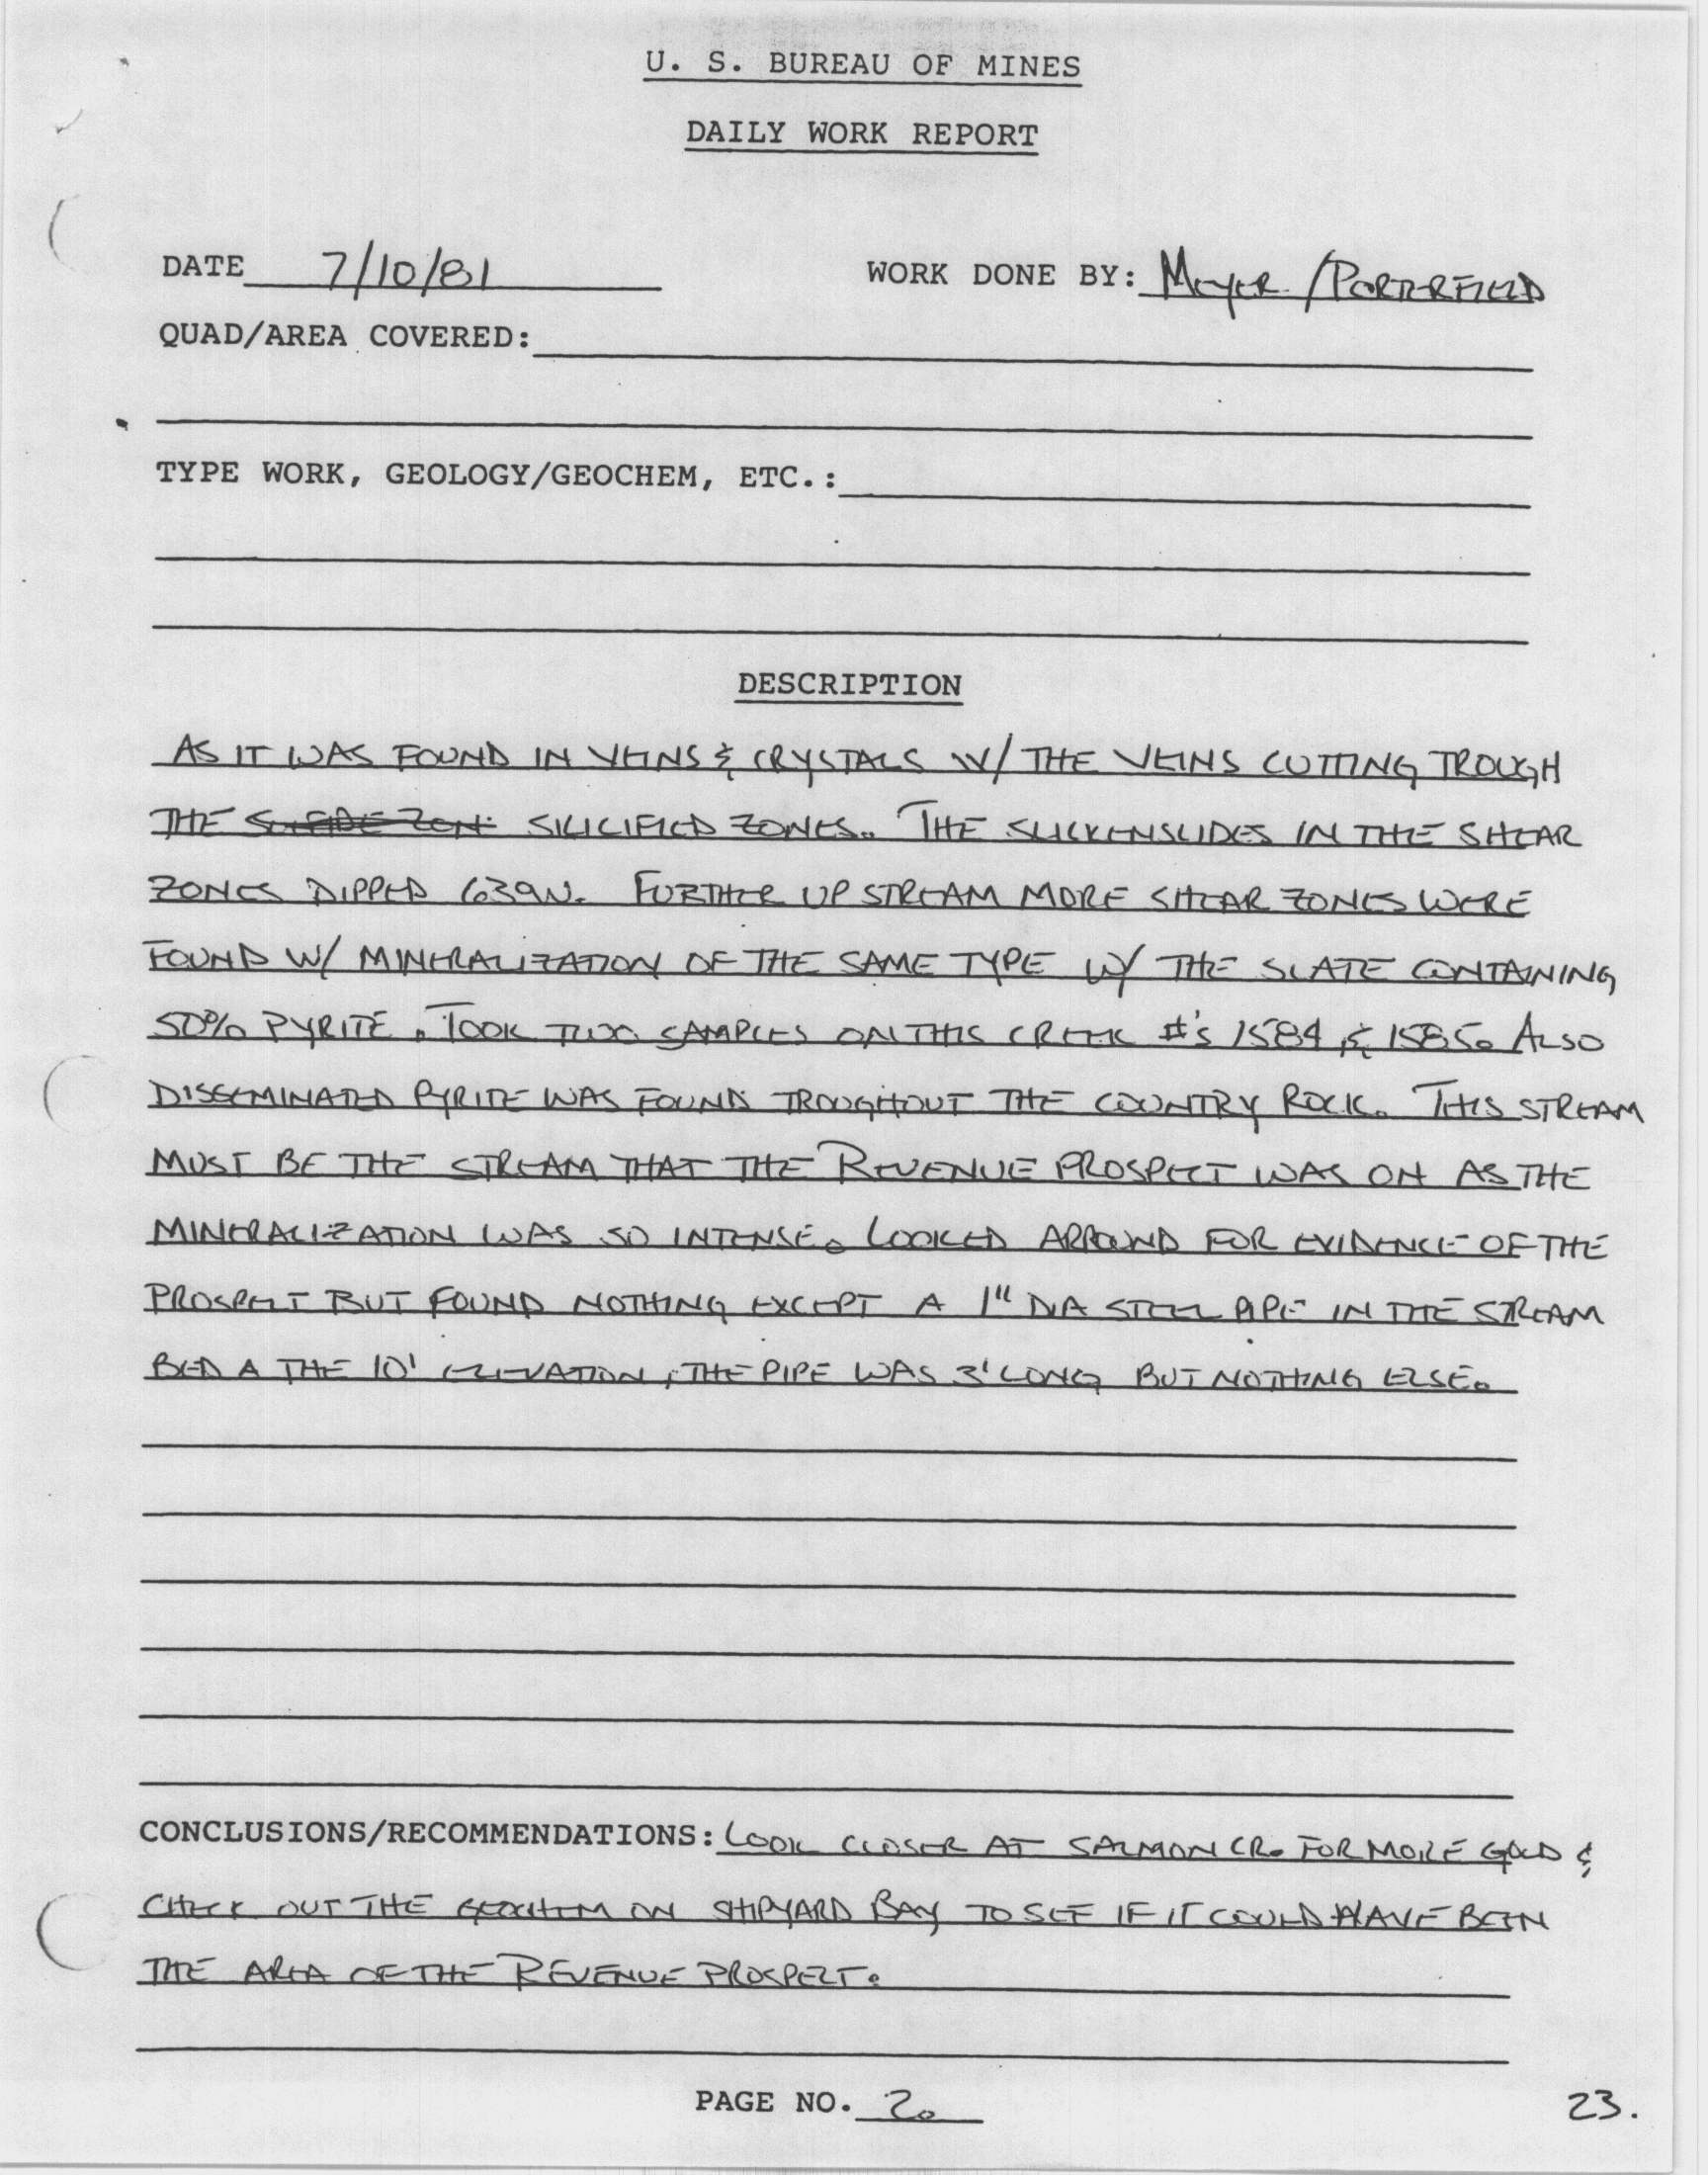 U. S. BUREAU OF MINES
DAILY WORK REPORT
DATE 7/10/81 WORK DONE BY: MEYER / PORTERFIELD
QUAD/AREA COVERED:
TYPE WORK, GEOLOGY/GEOCHEM, ETC.:
DESCRIPTION
AS IT WAS FOUND IN VEINS & CRYSTALS W/ THE VEINS CUTTING TROUGH
THE SILICIFIED ZONES. THE SLICKENSLIDES IN THE SHEAR
ZONES DIPPED 639N. FURTHER UP STREAM MORE SHEAR ZONES WERE
FOUND W/ MINERALIZATION OF THE SAME TYPE W/ THE SLATE CONTAINING
50% PYRITE. TOOK TWO SAMPLES ON THIS CREEK #'S 1584 & 1585. ALSO
DISSEMINATED PYRITE WAS FOUND TROUGHOUT THE COUNTRY ROCK. THIS STREAM
MUST BE THE STREAM THAT THE REVENUE PROSPECT WAS ON AS THE
MINERALIZATION WAS SO INTENSE. LOOKED ARROUND FOR EVIDENCE OF THE
PROSPECT BUT FOUND NOTHING EXCEPT A 1" DIA STEEL PIPE IN THE STREAM
BED A THE 10' ELEVATION, THE PIPE WAS 3' LONG BUT NOTHING ELSE.
CONCLUSIONS/RECOMMENDATIONS: LOOK CLOSER AT SALMON CR. FOR MORE GOLD &
CHECK OUT THE GEOCHEM ON SHIPYARD BAY TO SEE IF IT COULD HAVE BEEN
THE AREA OF THE REVENUE PROSPECT.
PAGE NO. 2. 23.